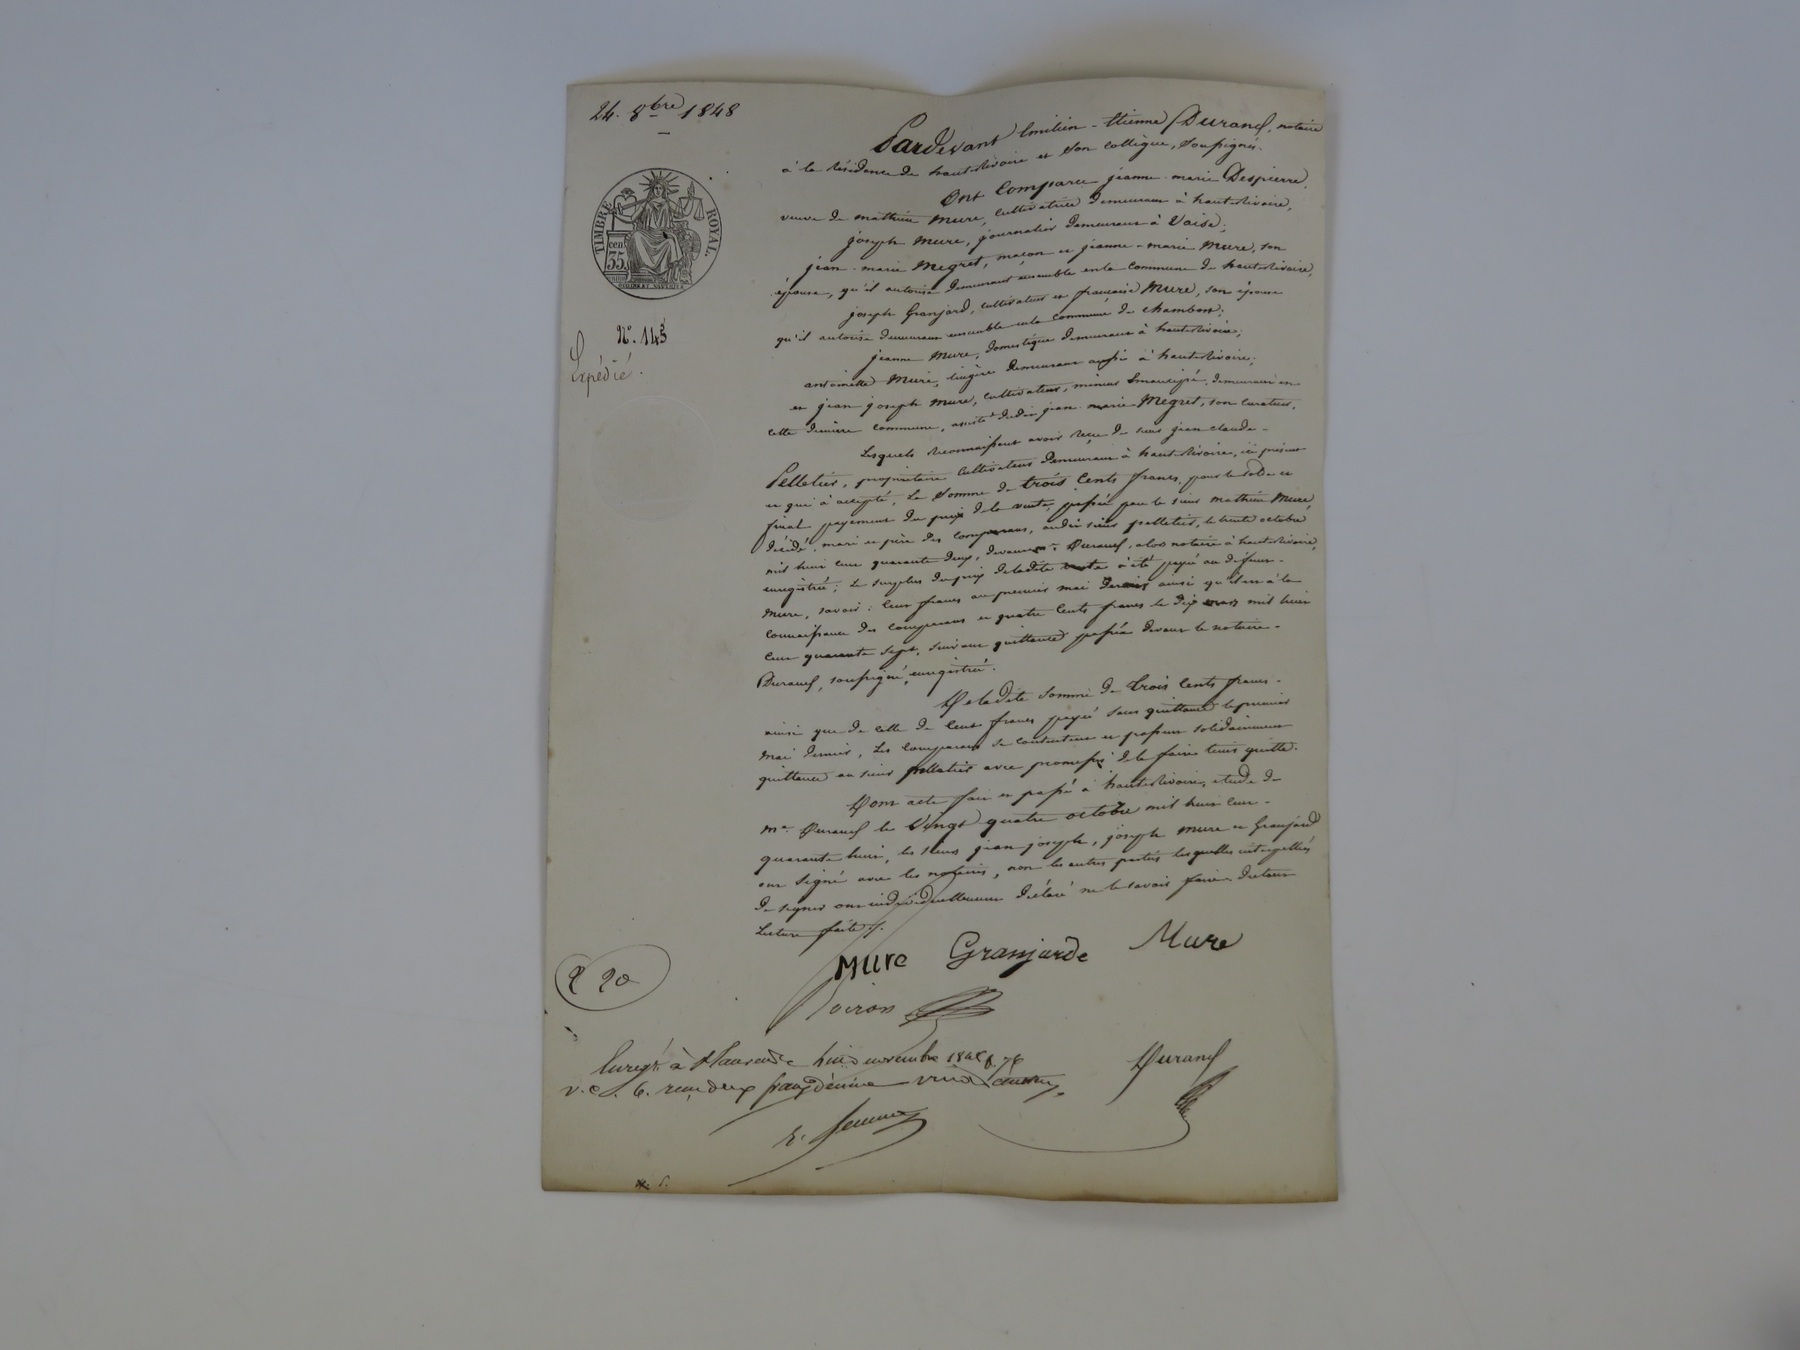 24. 8bre 1848
TIMBRE ROYAL
cen
35
N°. 143
Expédié.
Pardevant Emilien-Etienne Durand, notaire
à la résidence de haute Rivoire et son collègue, soussignés.
Ont Comparu jeanne-marie Despierre,
veuve de mathieu Mure, cultivatrice demeurant à haute Rivoire,
joseph Mure, journalier demeurant à Vaise;
jean-marie Megret, maçon et jeanne-marie Mure, son
épouse, qu'il autorise demeurant ensemble en la commune de haute Rivoire,
joseph Granjard, cultivateur et françoise Mure, son épouse
qu'il autorise demeurant ensemble en la commune de Chambost;
jeanne Mure, domestique demeurant à haute Rivoire;
antoinette Mure, lingère demeurant aussi à haute Rivoire;
et jean joseph Mure, cultivateur, mineur émancipé, demeurant en
cette dernière commune, assisté dudit jean-marie Megret, son curateur.
Lesquels reconnaissent avoir reçu de sieur jean claude-
Pelletier, propriétaire cultivateur demeurant à haute Rivoire, ici présent
et qui a accepté, la somme de trois Cents francs, pour le solde et
final payement du prix de la vente, passée par le sieur mathieu Mure,
décédé, mari et père des comparans, audit sieur pelletier, le trente octobre
mil huit cent quarante deux, devant me. Durand, alors notaire à haute Rivoire,
enregistré; le surplus du prix de ladite vente a été payé au défunt-
Mure, savoir: Cent francs au premier mai dernier ainsi qu'il est à la
connaissance des comparans et quatre cents francs le dix mars mil huit
cent quarante sept, suivant quittance passée devant le notaire-
Durand, soussigné, enregistrée.
De ladite somme de trois cents francs-
ainsi que de celle de Cent francs payée sans quittance le premier
mai dernier, les comparans se contentent et passent solidairement
quittance au sieur pelletier avec promesse de le faire tenir quitte.
Dont acte fait et passé à haute Rivoire, étude de
me. Durand le Vingt quatre octobre mil huit cent-
quarante huit, les sieurs jean joseph, joseph Mure et Granjard
ont signé avec les notaires, non les autres parties lesquelles interpellées
de signer ont individuellement déclaré ne le savoir faire de tout
Lecture faite.
Mure Granjarde Mure
Poiron
2 20
Enregt. à St Laurent le huit novembre 1848 f. 78
v. c. 6. reçu deux francs décime vingt centimes
Durand